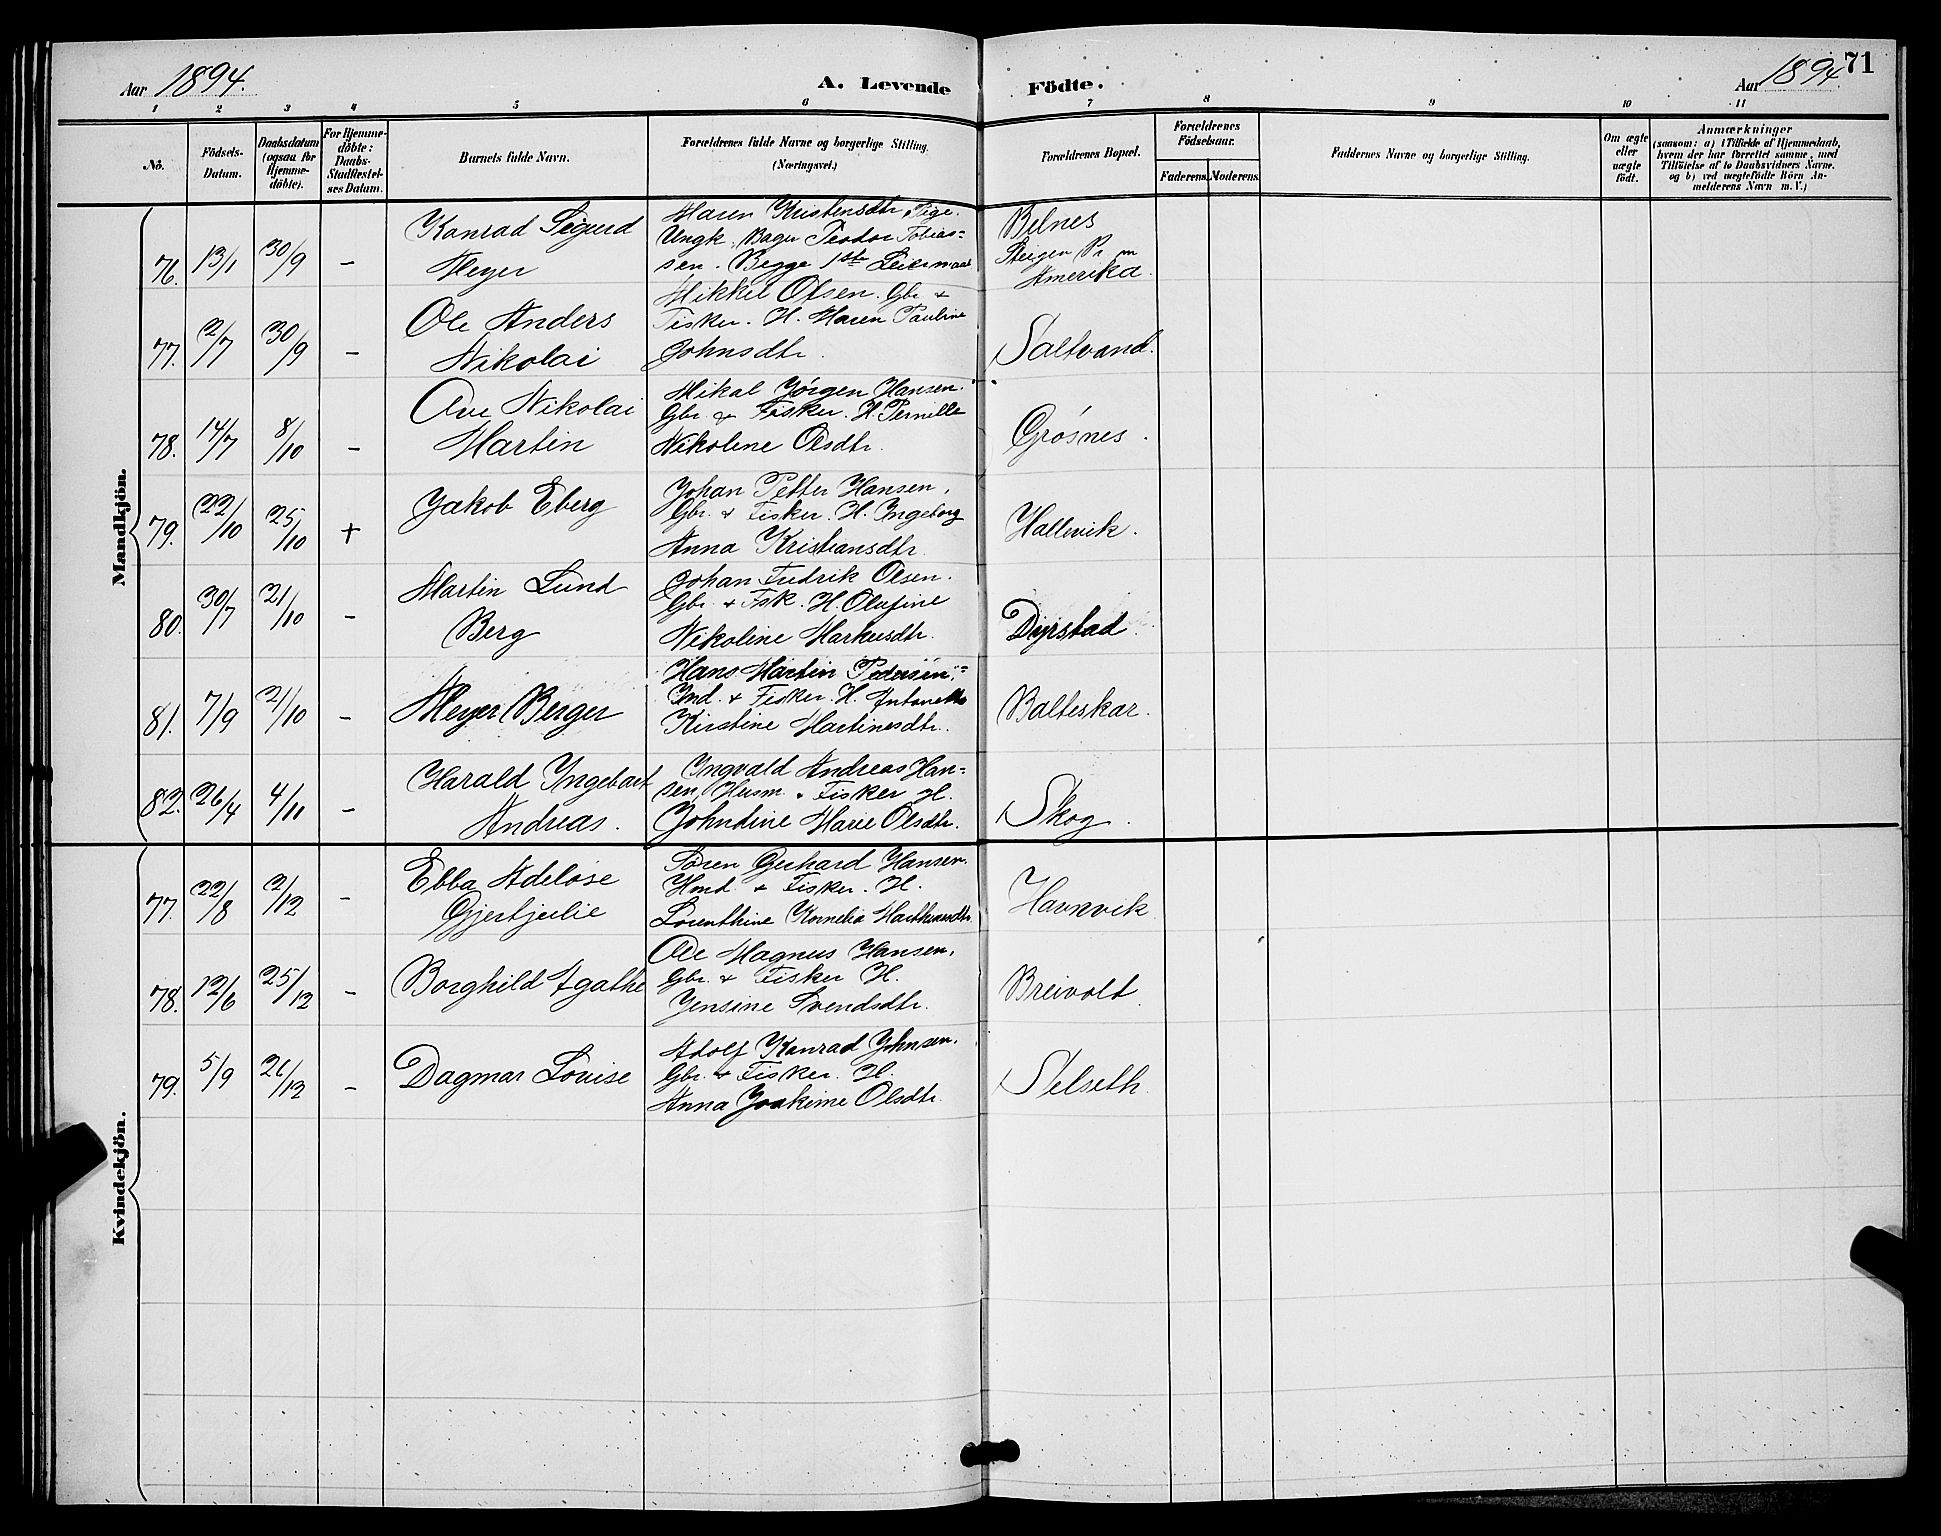 Aar 1894.
A. Levende Födte.
Aar 1894.
71
1 2 3 4 5 6 7 8 9 10 11
No.
Födsels-Datum.
Daabsdatum (ogsaa for Hjemme-döbte).
For Hjemme-döbte: Daabs-Stadfæstel-ses Datum.
Barnets fulde Navn.
Forældrenes fulde Navne og borgerlige Stilling. (Næringsvei.)
Forældrenes Bopæl.
Forældrenes Födselsaar.
Faderens. Moderens.
Faddernes Navne og borgerlige Stilling.
Om ægte eller uægte født.
Anmærkninger
(saasom: a) i Tilfælde af Hjemmedaab, hvem der har forrettet samme, med Tilföielse af to Daabsvidners Navne. og b) ved uægtefödte Börn An-melderens Navn m. V.)
Mandkjön.
76. 13/1 30/9 –
Konrad Sigurd
Meyer
Maren Kristensdtr Pige.
Ungk. Bager Teodor Tobias=
sen. Begge 1ste Leiermaal
Belnes
Steigen Pr.
Amerika.
77. 2/7 30/9 –
Ole Anders
Nikolai
Mikkel Olsen. Gbr. +
Fisker. H. Maren Pauline
Johnsdtr.
Saltvand.
78. 14/7 8/10 –
Ove Nikolai
Martin
Mikal Jörgen Hansen.
Gbr. + Fisker. H. Pernille
Nikoline Olsdtr.
Grøsnes.
79. 22/10 25/10 +
Jakob Eberg
Johan Petter Hansen,
Gbr. + Fisker. H. Ingeborg
Anna Kristiansdtr.
Hallevik.
80. 30/7 21/10 –
Martin Lund
Berg
Johan Fredrik Olsen.
Gbr. + Fisk. H. Olufine
Nikoline Markusdtr.
Dyrstad.
81. 7/9 21/10 –
Meyer Berger
Hans Martin Pedersen,
Ind. + Fisker. H. Antonette
Kirstine Martinesdtr.
Balteskar.
82. 26/4 4/11 –
Harald Ingebart
Andreas.
Ingvald Andreas Han=
sen, Husm. + Fisker H.
Johndine Marie Olsdtr.
Skog.
Kvindekjön.
77. 22/8 2/12 –
Ebba Adelose
Gjertjulie
Sören Gerhard Hansen.
Hmd. + Fisker. H.
Lorenthine Kornelia Marthinusdtr.
Havnvik
78. 12/6 25/12 –
Borghild Agathe
Ole Magnus Hansen,
Gbr. + Fisker H.
Jensine Svendsdtr.
Breivolt.
79. 5/9 26/12 –
Dagmar Lovise
Adolf Konrad Johnsen.
Gbr. + Fisker. H.
Anna Joakime Olsdtr.
Selseth.